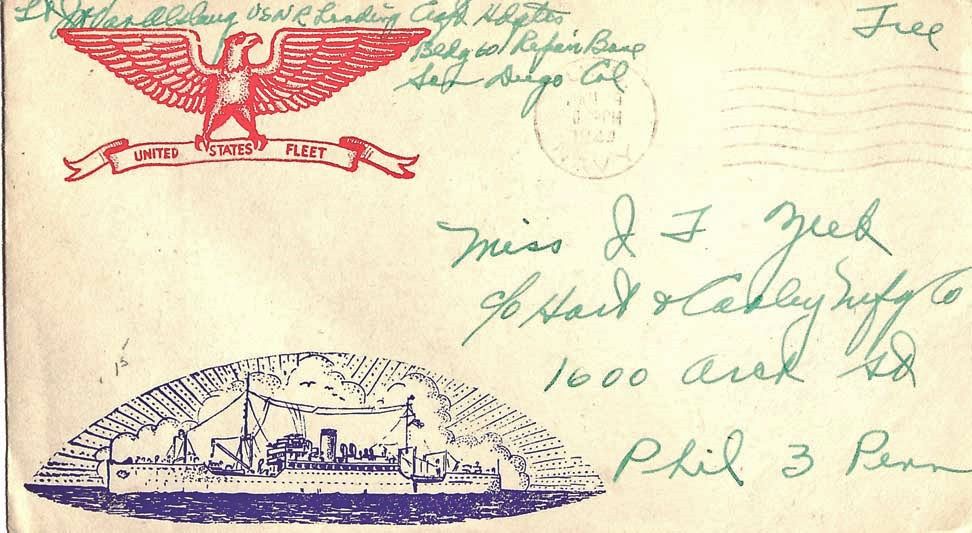 Lt JW Van Alstang USNR Landing Craft Hdqtrs
Bldg 601 Repair Base
San Diego Cal
Free
UNITED STATES FLEET
Miss J F
c/o Hart & Cooley Mfg Co
1600 Arch St
Phil 3 Penn
15